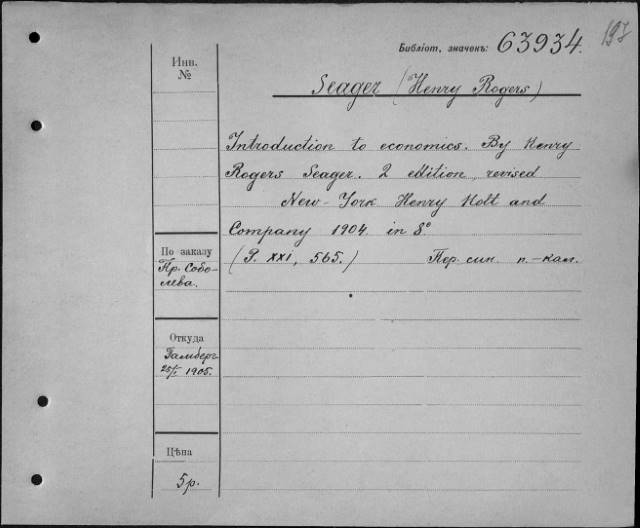 Библіот. значенъ: 63934.
Инв.
№
Seager (Henry Rogers)
Introduction to economics. By Henry
Rogers Seager. 2 edition, revised
New-York Henry Holt and
Company 1904 in 8°
(P. xxi, 565.) Пер. син. п.-кал.
По заказу
Пр. Собо-
лева.
Откуда
Гамберг
25/I 1905.
Цѣна
5р.